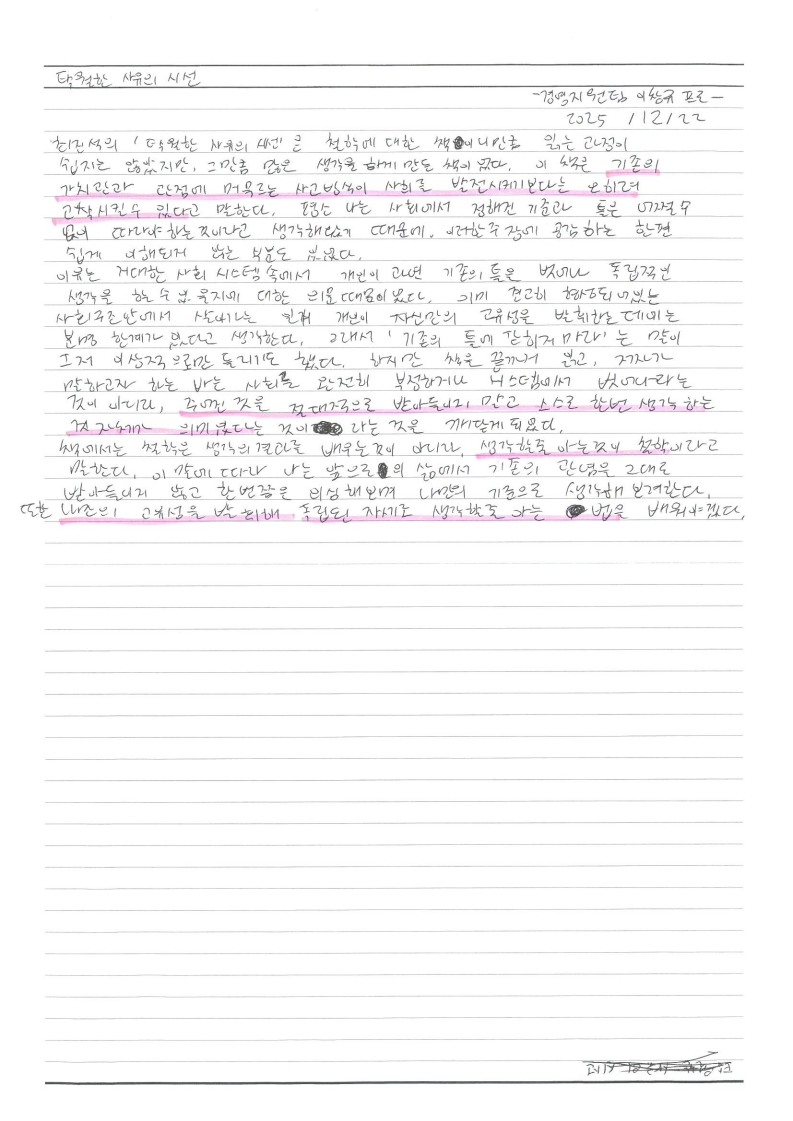 탁월한 사유의 시선
-경영지원팀 이창규 프로-
2025 /12/22
최진석의 '탁월한 사유의 시선'은 철학에 대한 책이니만큼 읽는 과정이
쉽지는 않았지만, 그만큼 많은 생각을 하게 만든 책이었다. 이 책은 기존의
가치관과 관점에 머무르는 사고방식이 사회를 발전시키기보다는 오히려
고착시킬 수 있다고 말한다. 평소 나는 사회에서 정해진 기준과 틀은 어쩔 수
없이 따라야 하는 것이라고 생각해왔기 때문에, 이러한 주장에 공감하는 한편
쉽게 이해되지 않는 부분도 있었다.
이유는 거대한 사회 시스템 속에서 개인이 과연 기존의 틀을 벗어나 독립적인
생각을 할 수 있을지에 대한 의문 때문이었다. 이미 견고히 형성되어있는
사회구조안에서 살아가는 한 개인이 자신만의 고유성을 발휘하는 데에는
분명 한계가 있다고 생각한다. 그래서 '기존의 틀에 갇히지 마라'는 말이
그저 이상적으로만 들리기도 했다. 하지만 책을 끝까지 읽고, 저자가
말하고자 하는 바는 사회를 완전히 부정하거나 시스템에서 벗어나라는
것이 아니라, 주어진 것을 절대적으로 받아들이지 말고 스스로 한번 생각하는
것 자체가 의미있다는 것이 라는 것을 깨닫게 되었다.
책에서는 철학은 생각의 결과를 배우는것이 아니라, 생각할줄 아는것이 철학이라고
말한다. 이 말에 따라 나는 앞으로의 삶에서 기존의 관념을 그대로
받아들이지 않고 한번쯤은 의심해보며 나만의 기준으로 생각해 보려한다.
또한 나만의 고유성을 발휘해 독립된 자기로 생각할줄 아는 법을 배워야겠다.